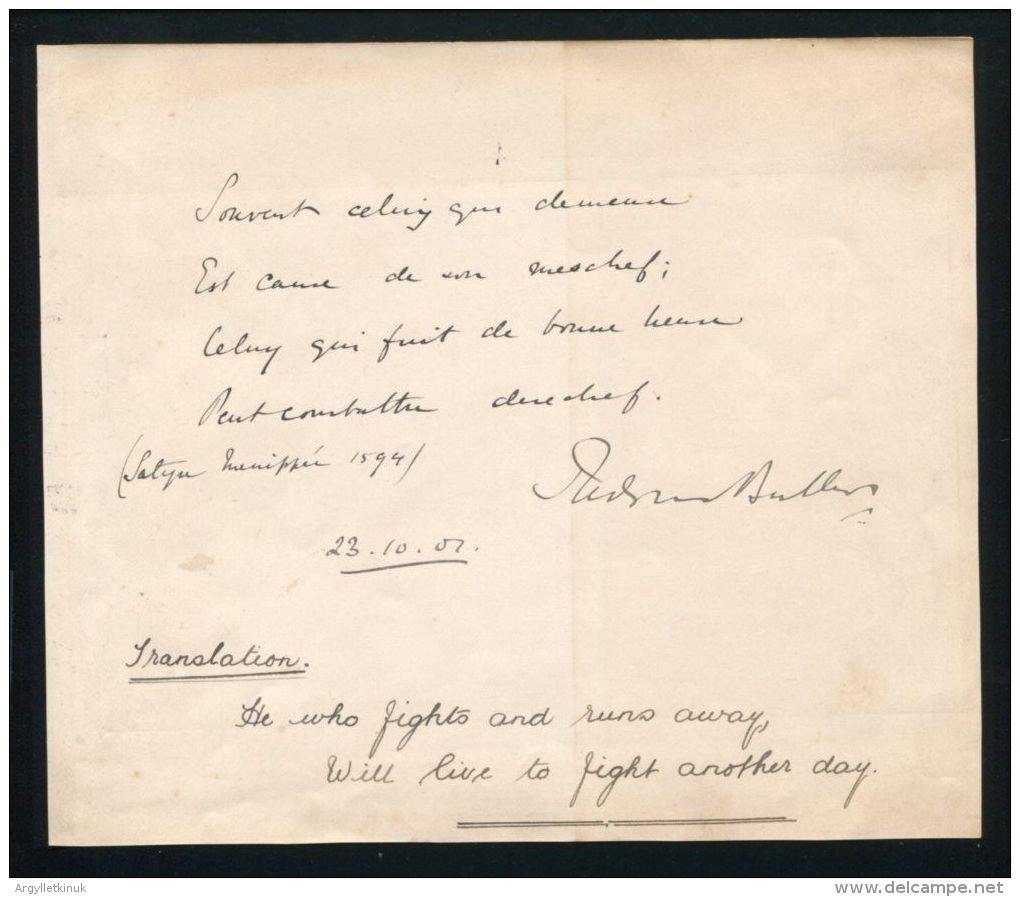 Souvent celuy qui demeure
Est cause de son meschef;
Celuy qui fuit de bonne heure
Peut combattre derechef.
(Satyre Menippée 1594)
Redvers Buller
23.10.01.
Translation.
He who fights and runs away,
Will live to fight another day.
Argylletkinuk
www.delcampe.net